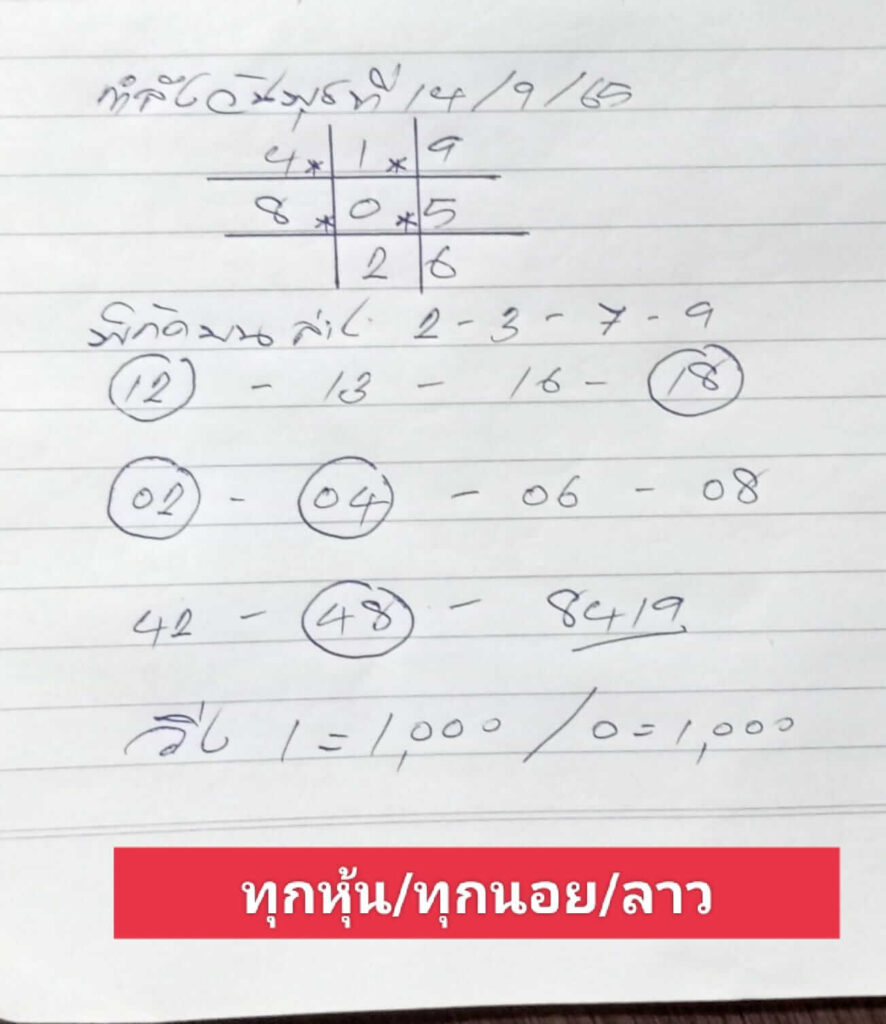 กำลังวันพุธที่ 14/9/65
4*1*9
8*0*5
2 6
พิกัดบน ล่าง 2-3-7-9
12 - 13 - 16 - 18
02 - 04 - 06 - 08
42 - 48 - 8419
วิ่ง 1=1,000 / 0=1,000
ทุกหุ้น/ทุกนอย/ลาว